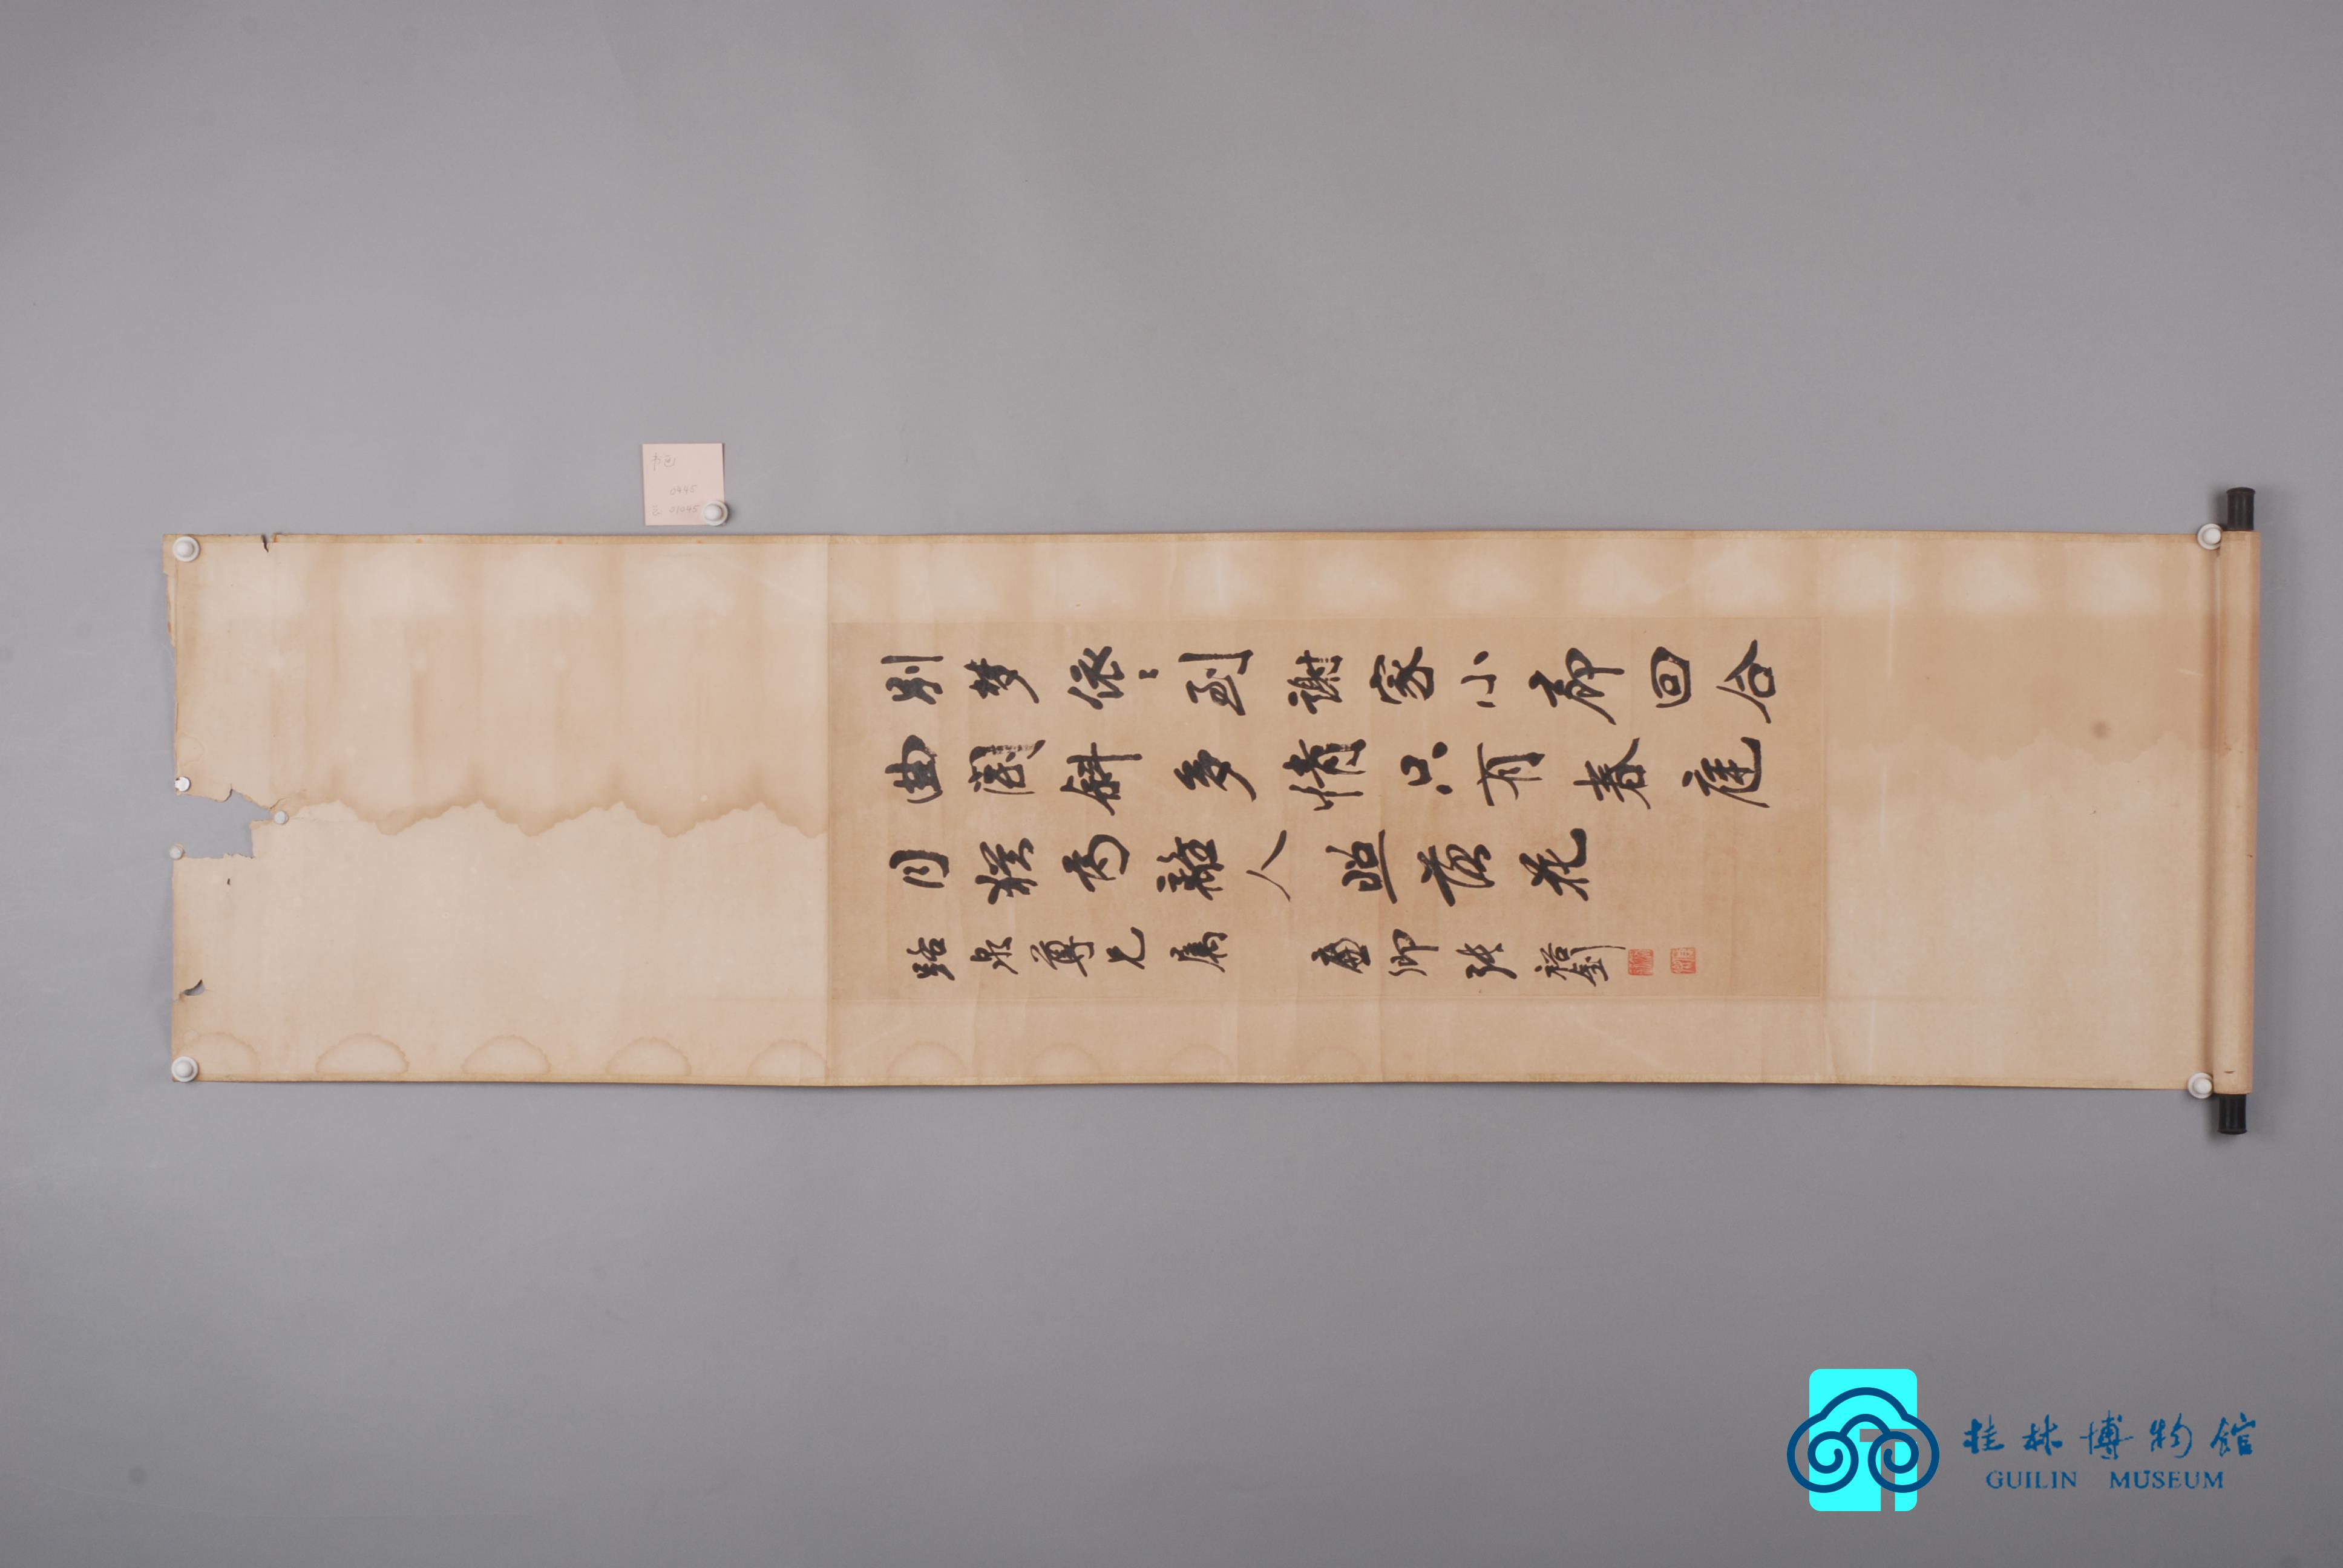 別夢依〻到謝家小廊回合
曲闌斜多情只有春庭
月猶為離人照落花
路泉尊兄屬 廉卿張裕釗
0445
桂林博物馆
GUILIN MUSEUM